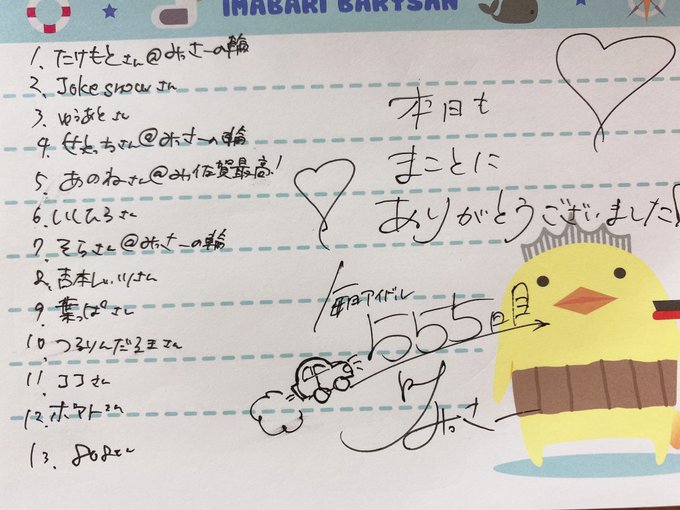 IMABARI BARYSAN
1. たけもとさん@みっさーの輪
2. Jokesnowさん
3. ゆうあとさん
4. せとっちさん@みっさーの輪
5. あのねさん@みっ佐賀最高!
6. いしひろさん
7. そらさん@みっさーの輪
8. 吉本じゅいさん
9. 葉っぱさん
10. つるりんだるまさん
11. ココさん
12. ポテトさん
13. さん
本日も
まことに
ありがとうございました!
毎日アイドル
555日目
みっさー